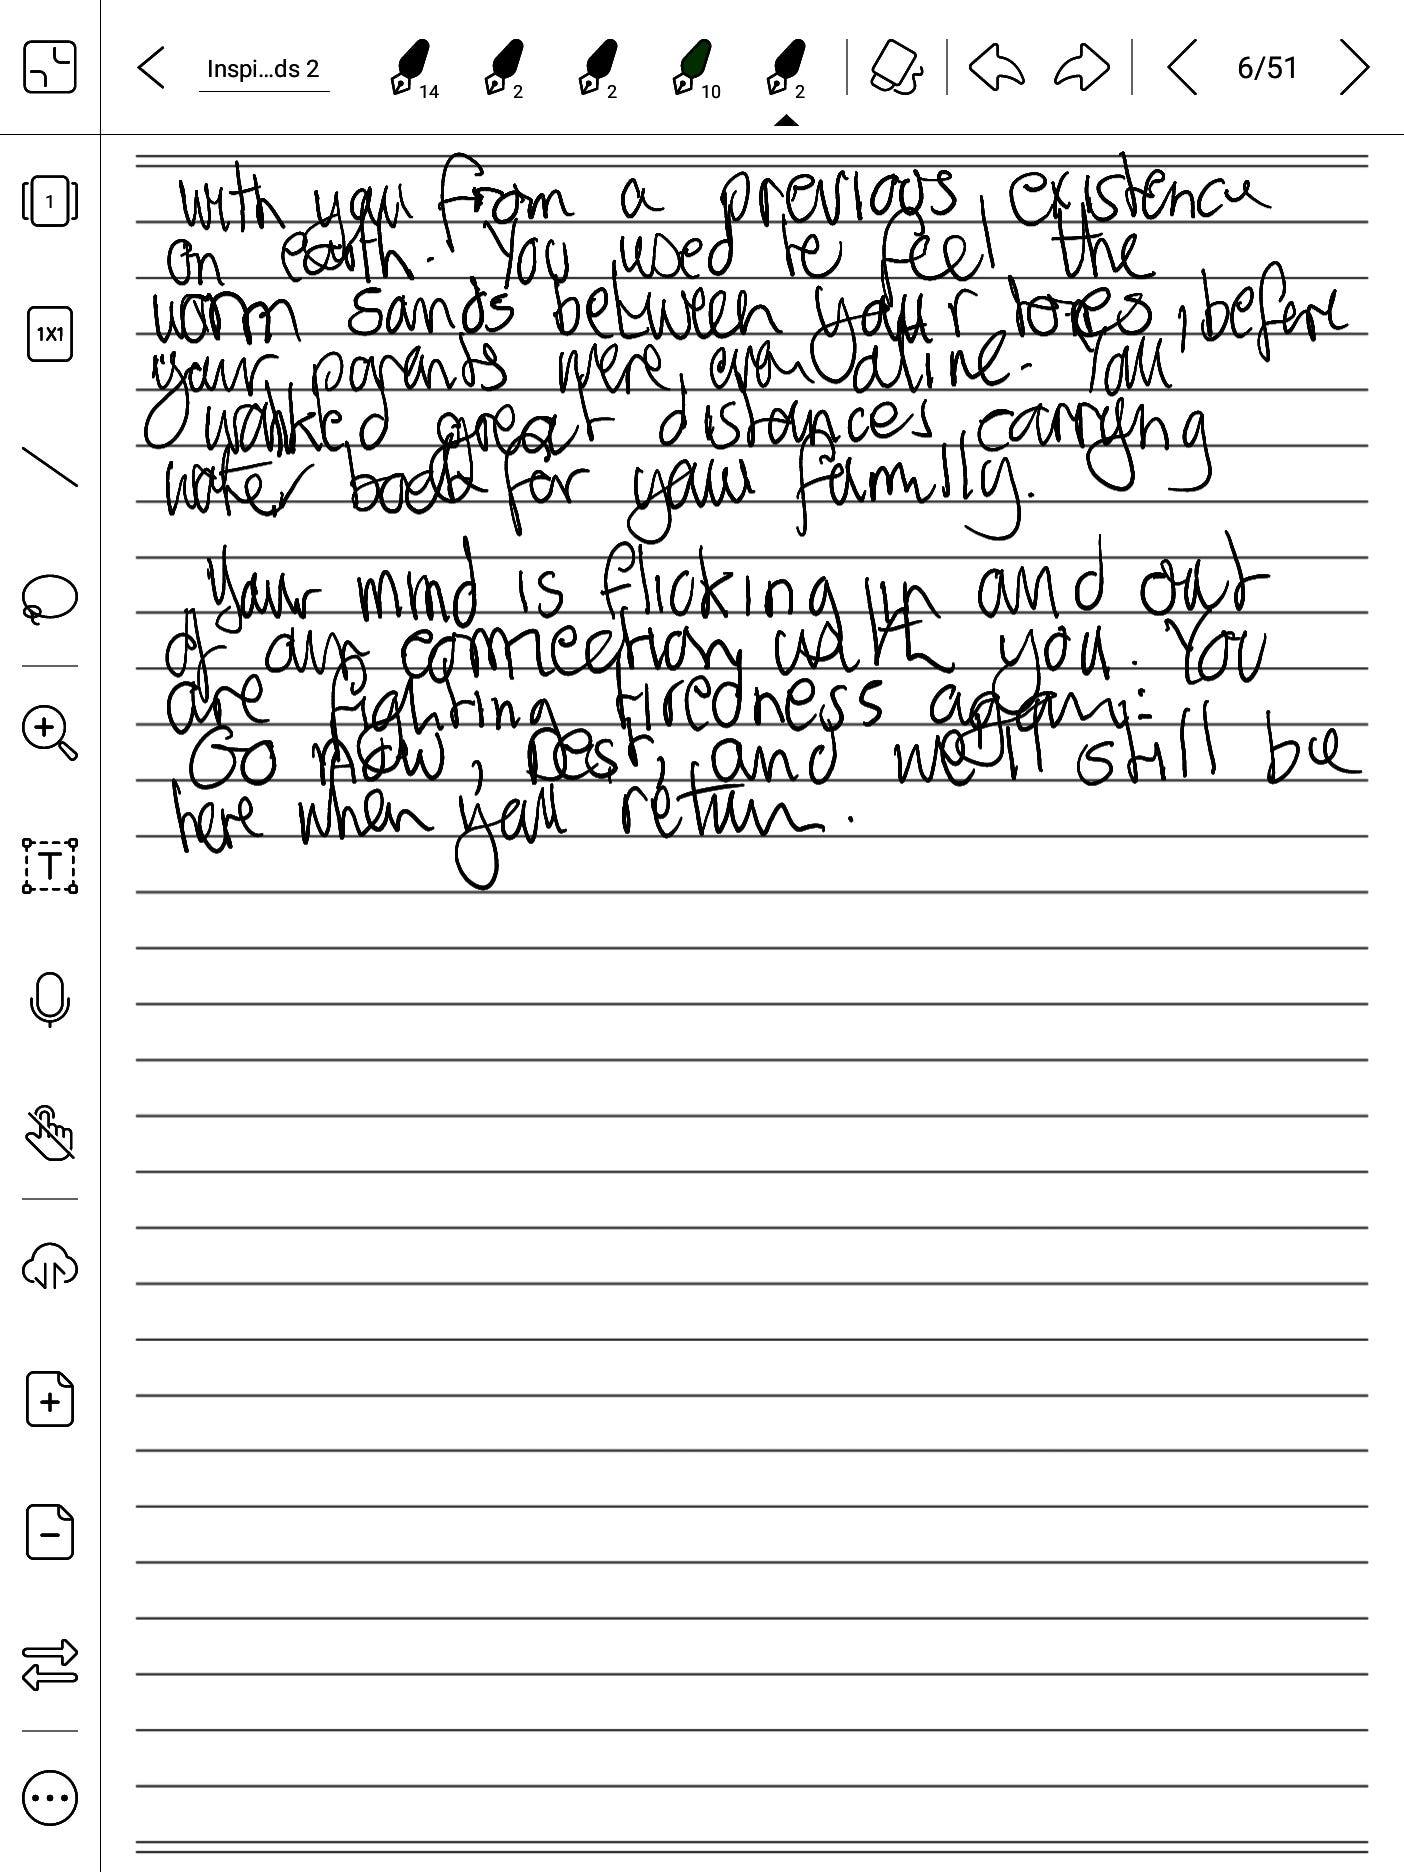 Inspi...ds 2
14
2
2
10
2
6/51
1
1X1
T
with you from a previous existence
on earth. You used to feel the
warm sands between your toes, before
your parents were even alive. You
walked great distances, carrying
water back for your family.
Your mind is flicking in and out
of our connection with you. You
are fighting tiredness again:
Go now, Rest, and we'll still be
here when you return.